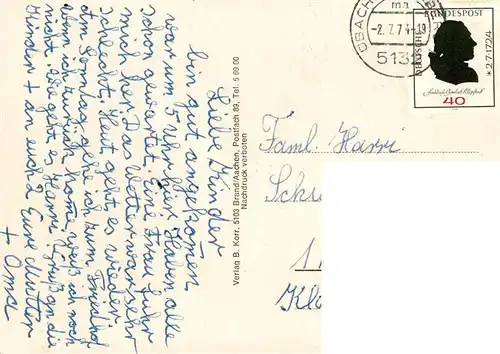 Liebe Kinder
bin gut angekommen
war um 5 Uhr hier. Haben alle
schon gewartet. Eine Frau fuhr
mich her. Das Wetter war sehr
schlecht. Heut geht es wieder.
den Sonntag gehe ich zum Friedhof
wenn ich zurück komme, weiß ich noch
nicht. Wie geht es Harri? Gruß an die
Kinder + an euch 2 Eure Mutter
+ Oma
Verlag B. Korr, 5103 Brand/Aachen, Postfach 89, Tel. 5 69 00
Nachdruck verboten
-2.7.74-19
513
DEUTSCHE BUNDESPOST
* 2.7.1724
Friedrich Gottlieb Klopstock
40
Faml. Harri
Sch
1
Kl